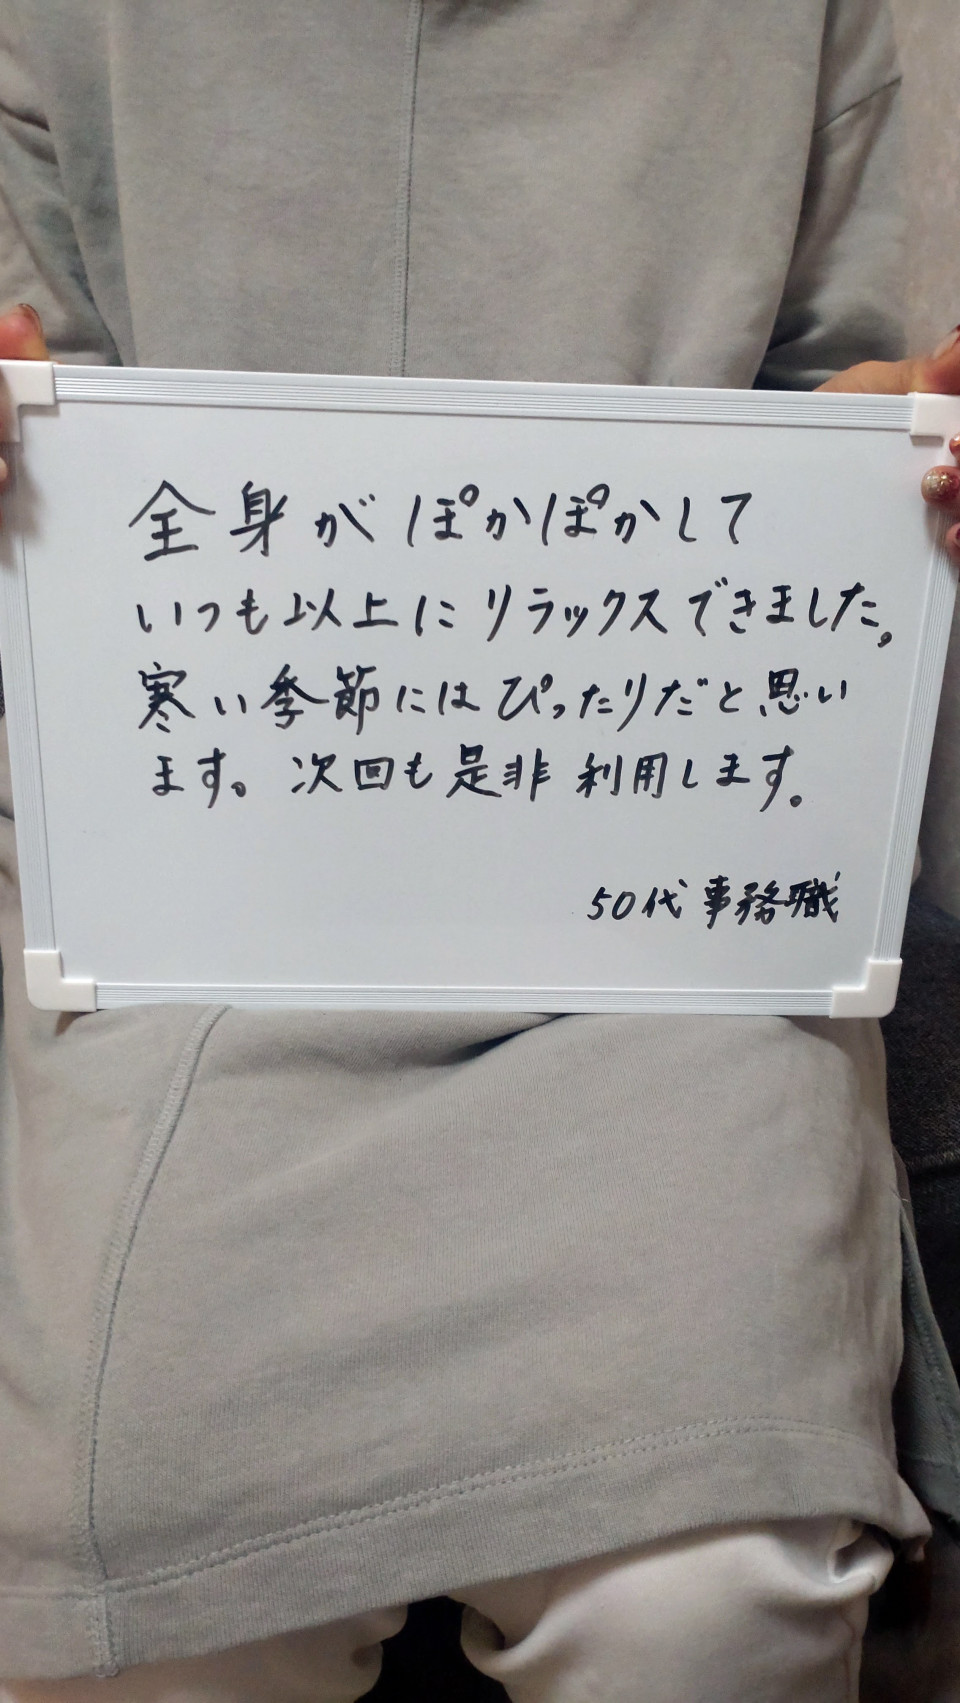 全身がぽかぽかして
いつも以上にリラックスできました。
寒い季節にはぴったりだと思い
ます。次回も是非利用します。
50代事務職